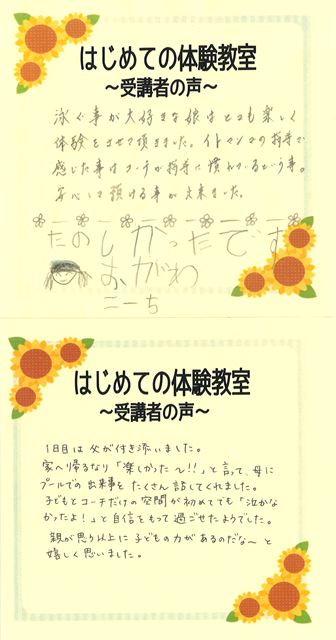 はじめての体験教室
～受講者の声～
泳ぐ事が大好きな娘はとても楽しく
体験をさせて頂きました。イトマンの指導で
感じた事はコーチが指導に慣れているという事。
安心して預ける事が出来ました。
たのしかったです
おがわ
こーち
はじめての体験教室
～受講者の声～
1日目は父が付き添いました。
家へ帰るなり「楽しかった～!!」と言って、母に
プールでの出来事をたくさん話してくれました。
子どもとコーチだけの空間が初めてでも「泣かな
かったよ!」と自信をもって過ごせたようでした。
親が思う以上に子どもの力があるのだな～と
嬉しく思いました。